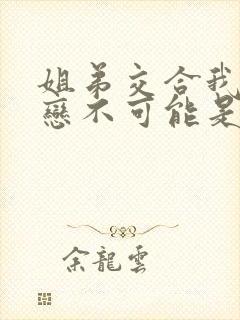 姐弟交合我
戀不可能是
余龍雲